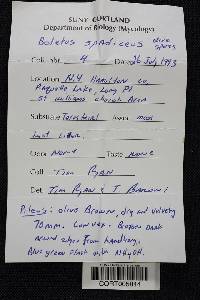 SUNY CORTLAND
Department of Biology (Mycology)
Boletus spadiceus olive spores
Coll. Nbr. 4 Date 26 July 1993
Location N.Y Hamilton co.
Raquette Lake, Long Pt
St Williams church Area
Substrate Terrestrial
Leaf Litter.
Odor None Taste None
Coll Tim Ryan
Det Tim Ryan & T Baroni
Pileus: olive Brown, dry and velvety
70mm. Convex.
around edges from handling.
Blue green flash with NH4OH.
CORT006044